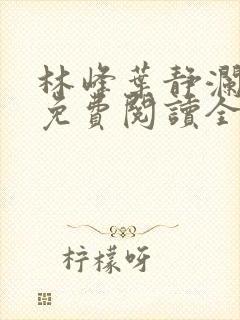 林峰葉静瀾
免費閱讀全
柠檬呀